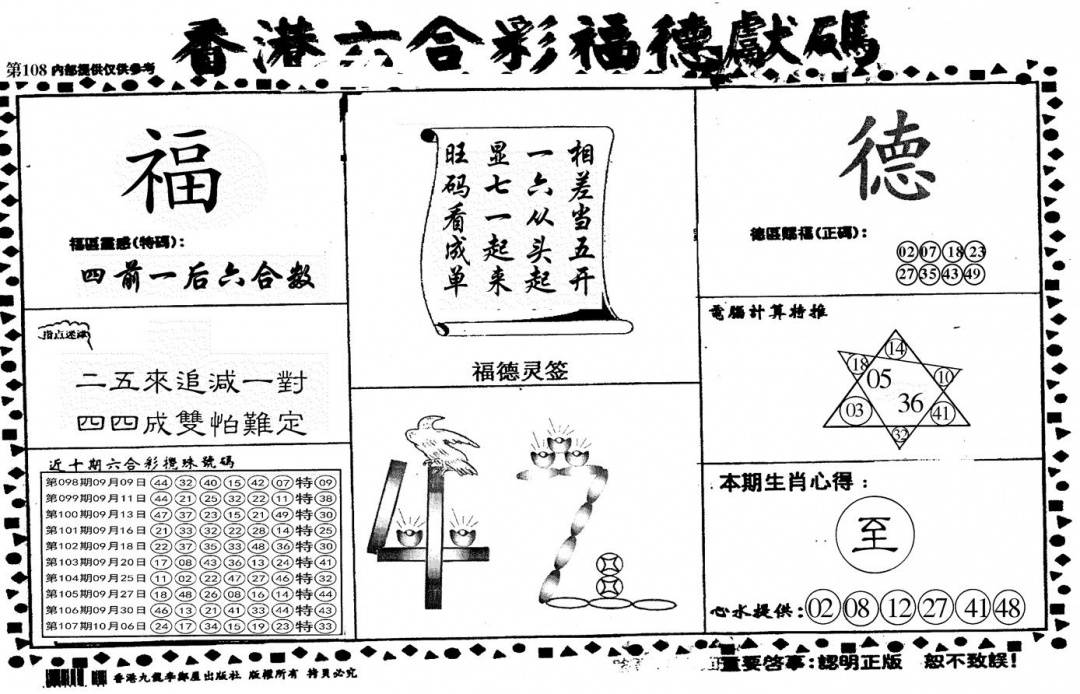 香港六合彩福德獻碼
第108 內部提供仅供参考
福
福區靈感(特碼):
四前一后六合数
指点迷津
二五來追減一對
四四成雙怕難定
近十期六合彩攪珠號碼
第098期09月09日 44 32 40 15 42 07 特 09
第099期09月11日 44 21 25 32 22 11 特 38
第100期09月13日 47 37 23 15 21 49 特 30
第101期09月16日 21 33 32 22 28 14 特 25
第102期09月18日 22 37 35 33 48 36 特 30
第103期09月20日 17 08 43 36 13 24 特 41
第104期09月25日 11 02 22 47 27 46 特 32
第105期09月27日 18 48 26 08 16 14 特 44
第106期09月30日 46 13 21 41 33 44 特 43
第107期10月06日 24 17 34 15 19 23 特 33
相差当五开
一六从头起
显七一起来
旺码看成单
福德灵签
47
德
德區賜福(正碼):
02 07 18 23
27 35 43 49
電腦計算特推
14
18 10
05
36
03 41
32
本期生肖心得:
至
心水提供: 02 08 12 27 41 48
香港九龍李鄭屋出版社 版權所有 拷貝必究
重要啓事:認明正版 恕不致誤!